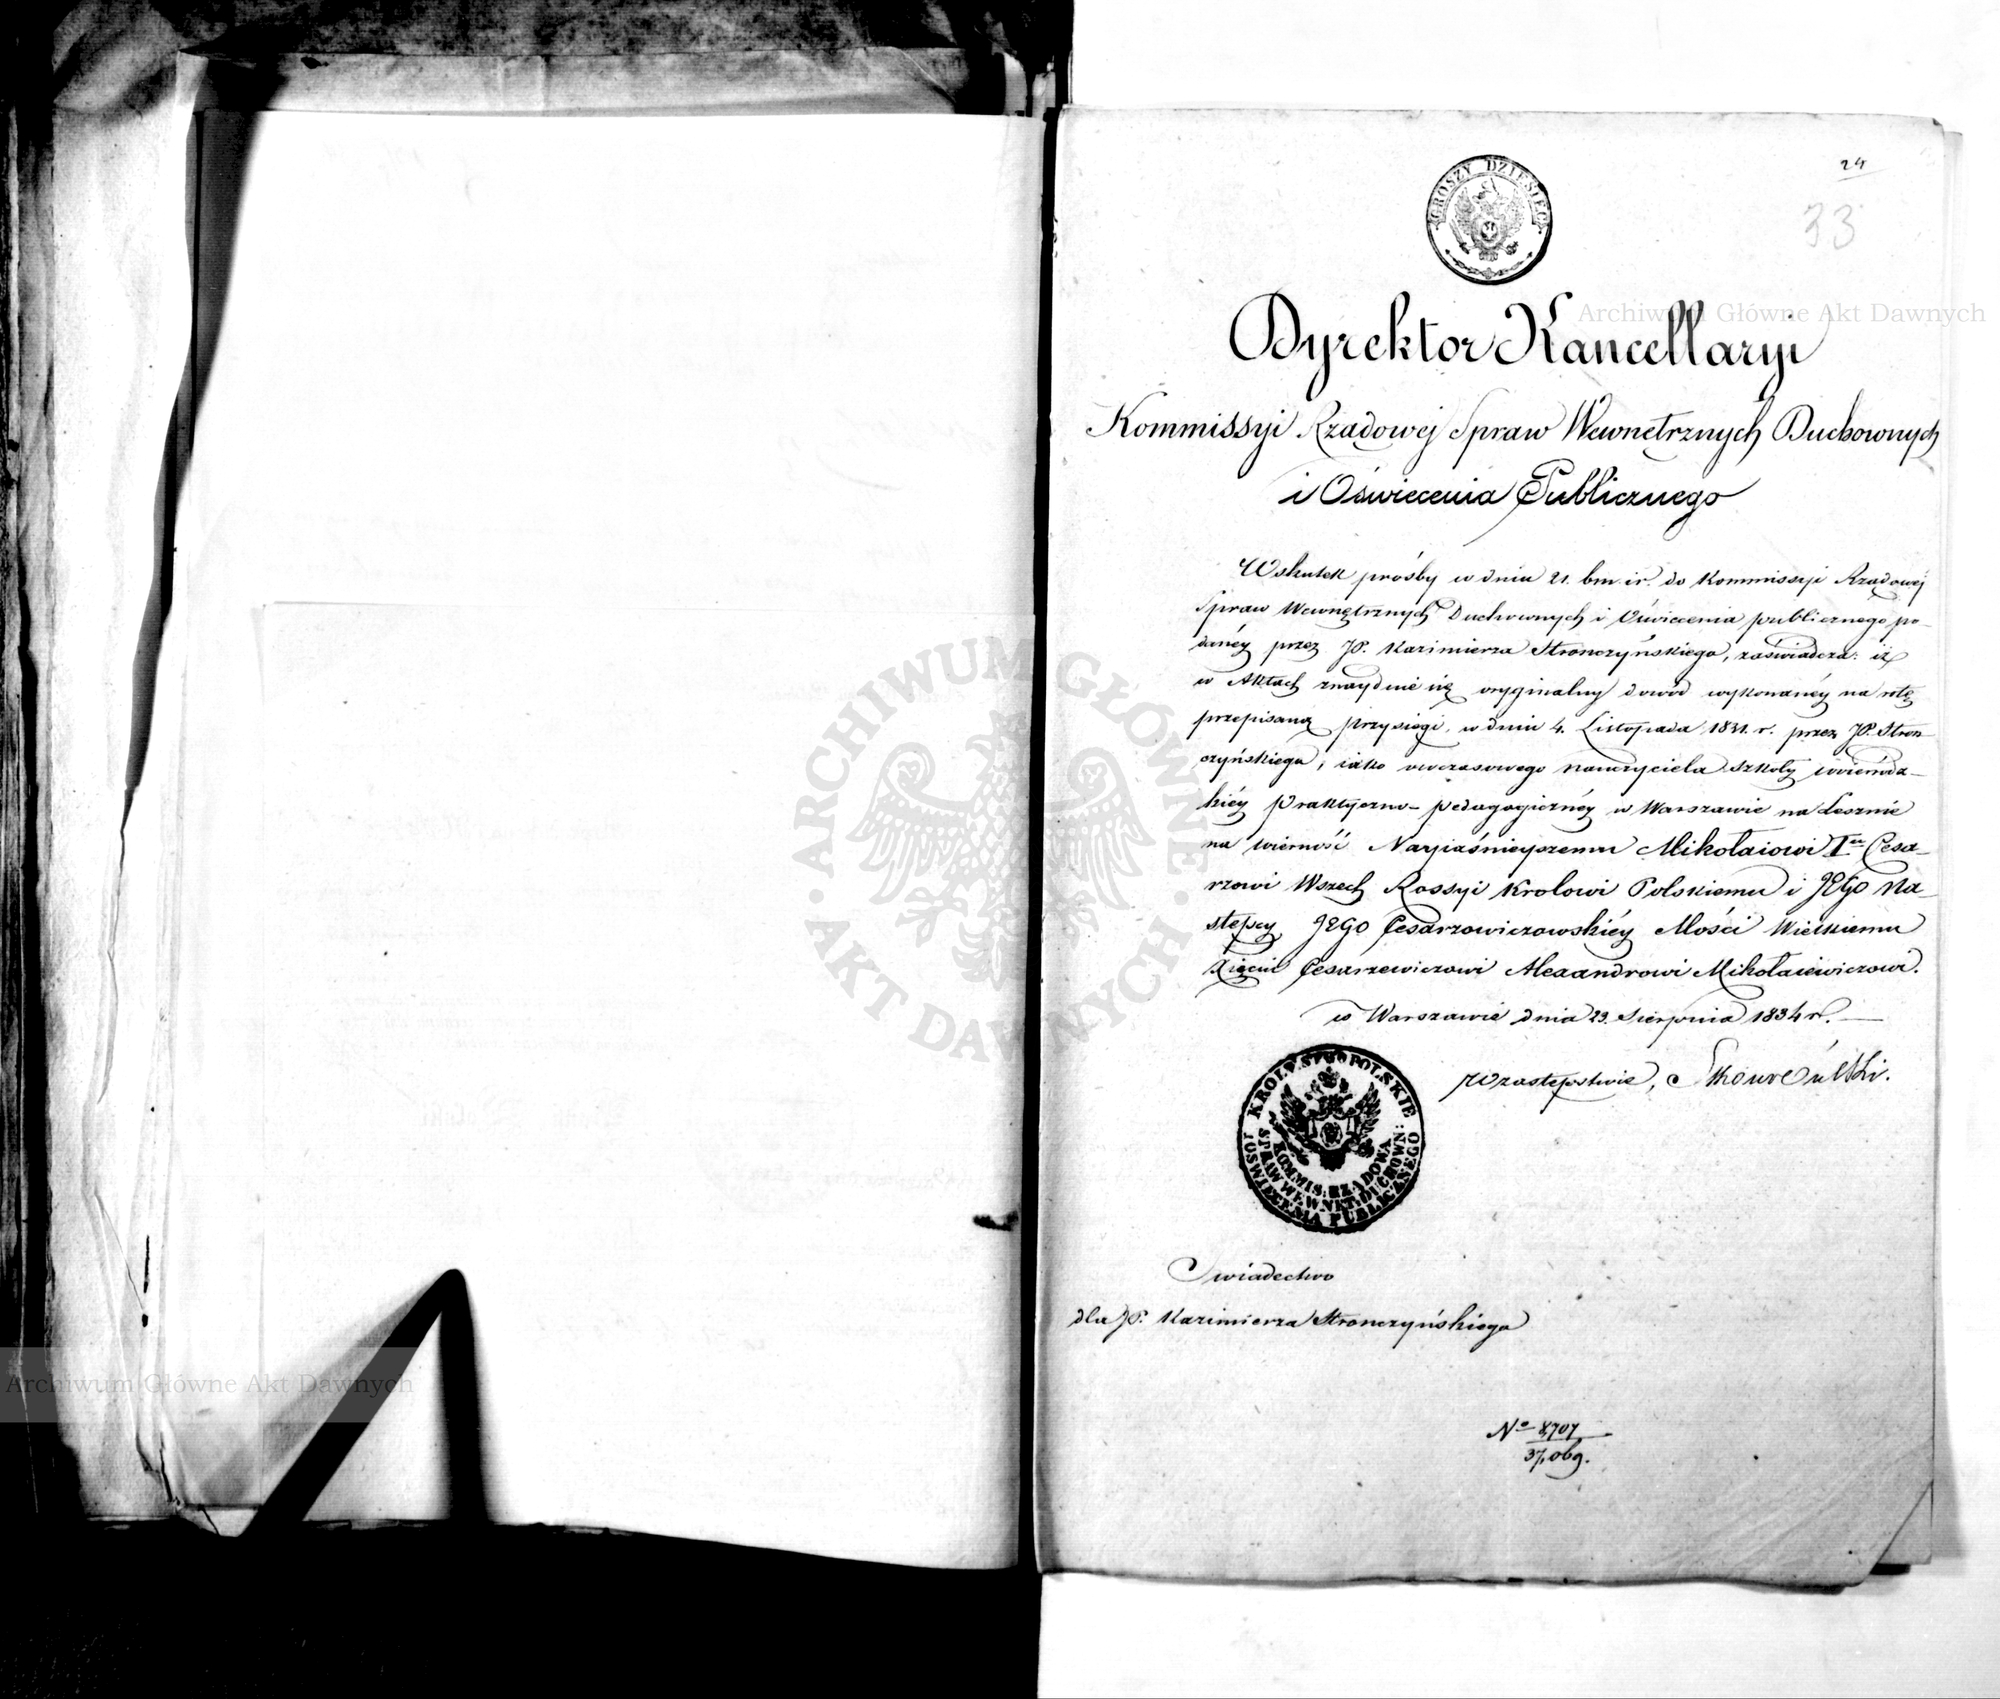 24
33
GROSZY DZIESIĘĆ
Dyrektor Kancellaryi
Kommissyi Rządowej Spraw Wewnętrznych Duchownych
i Oświecenia Publicznego
Wskutek prośby w dniu 21. bm. i r. do Kommissyi Rządowej
Spraw Wewnętrznych Duchownych i Oświecenia publicznego po-
danéy przez JP. Kazimierza Stronczyńskiego, zaświadcza: iż
w Aktach znayduie się oryginalny dowód wykonanéy na rotę
przepisaną przysięgi, w dniu 4. Listopada 1831. r. przez JP. Stron-
czyńskiego, iako owczasowego nauczyciela szkoły
kiéy praktyczno-pedagogicznéy w Warszawie na Lesznie
na wierność Nayiaśnieyszemu Mikołaiowi I Cesa-
rzowi Wszech Rossyi Królowi Polskiemu i JEGO Na-
stępcy, JEGO Cesarzowiczowskiéy Mości Wielkiemu
Xięciu Cesarzewiczowi Alexandrowi Mikołaiewiczowi.
w Warszawie dnia 23. Sierpnia 1834 r.
W zastępstwie,
KRÓLESTWO POLSKIE
KOMMIS: RZĄDOWA
SPRAW WEWNĘT: DUCHOWN:
I OŚWIECENIA PUBLICZNEGO
Swiadectwo
dla JP. Kazimierza Stronczyńskiego
No 8,707
37,069.
Archiwum Główne Akt Dawnych
ARCHIWUM GŁÓWNE AKT DAWNYCH
Archiwum Główne Akt Dawnych